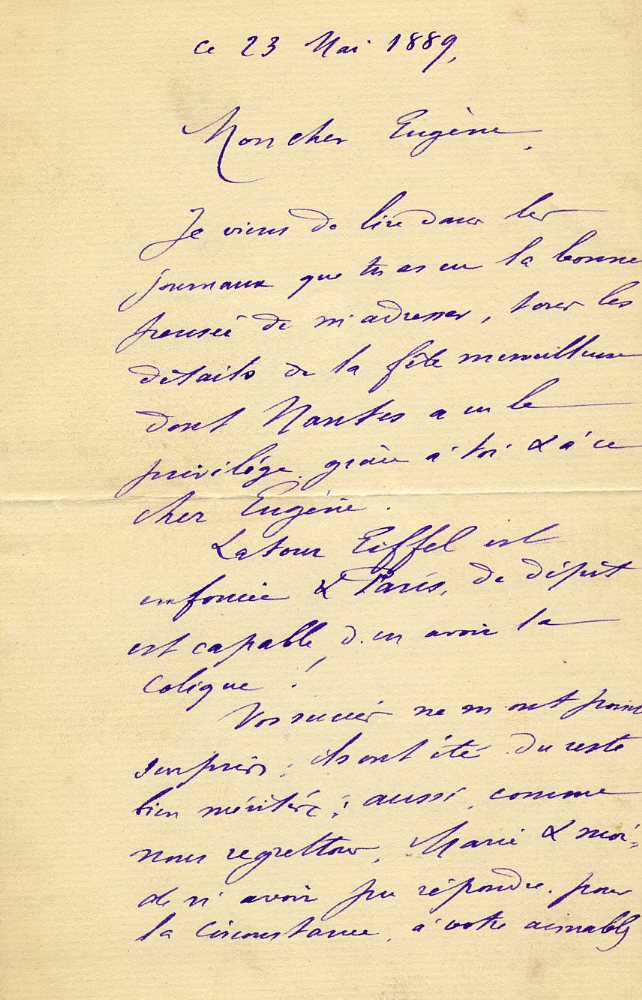 ce 23 Mai 1889,
Mon cher Eugène,
Je viens de lire dans les
journaux que tu as eu la bonne
pensée de m'adresser, tous les
détails de la fête merveilleuse
dont Nantes a eu le
privilège, grâce à toi & à ce
cher Eugène.
La tour Eiffel est
enfoncée & Paris, de dépit
est capable d'en avoir la
colique !
Vos succès ne m'ont point
surpris ; ils ont été du reste
bien mérités ; aussi, comme
nous regrettons, Marie & moi,
de n'avoir pu répondre, pour
la circonstance, à votre aimable